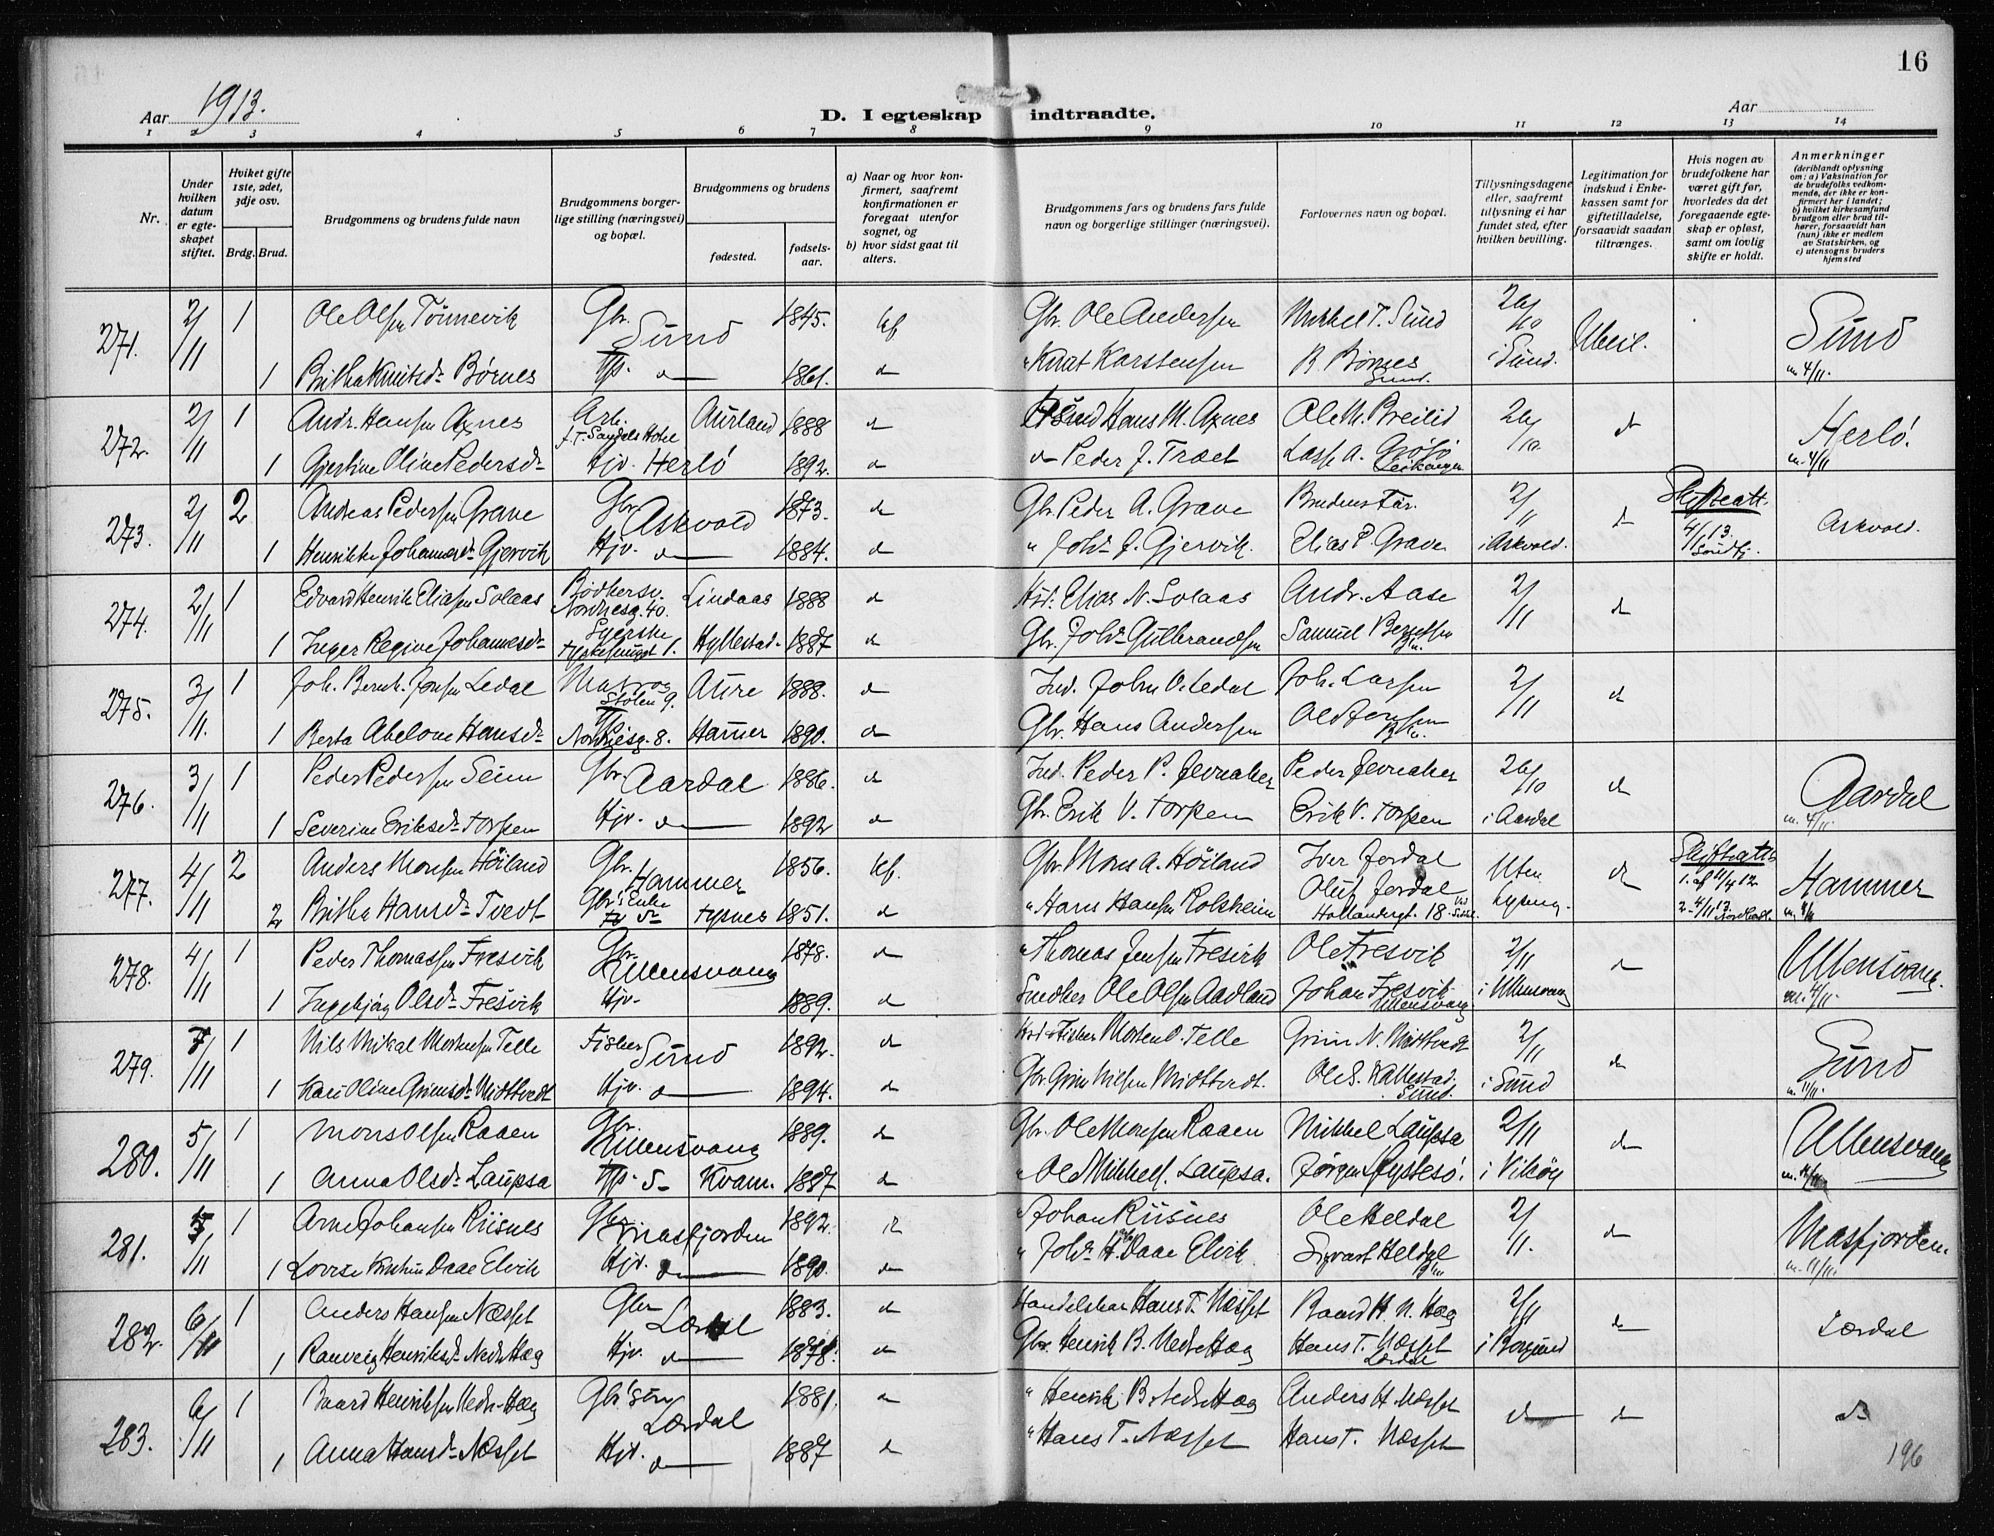 16
Aar 1913.
D. I egteskap indtraadte.
Aar
1 2 3 4 5 6 7 8 9 10 11 12 13 14
Nr.
Under hvilken datum er egteskapet stiftet.
Hviket gifte 1ste, 2det, 3dje osv.
Brdg. Brud.
Brudgommens og brudens fulde navn
Brudgommens borgerlige stilling (næringsvei) og bopæl.
Brudgommens og brudens
fødested.
fødselsaar.
a) Naar og hvor konfirmert, saafremt konfirmationen er foregaat utenfor sognet, og
b) hvor sidst gaat til alters.
Brudgommens fars og brudens fars fulde navn og borgerlige stillinger (næringsvei).
Forlovernes navn og bopæl.
Tillysningsdagene eller, saafremt tillysning ei har fundet sted, efter hvilken bevilling.
Legitimation for indskud i Enkekassen samt for giftetilladelse, forsaavidt saadan tiltrænges.
Hvis nogen av brudefolkene har været gift før, hvorledes da det foregaaende egteskap er opløst, samt om lovlig skifte er holdt.
Anmerkninger (deriblandt oplysning om: a) Vaksination for de brudefolks vedkommende, der ikke er konfirmert her i landet; b) hvilket kirkesamfund brudgom eller brud tilhører, forsaavidt han (hun) ikke er medlem av Statskirken, og c) utensogns bruders hjemsted
271. 2/11 1 Ole Olsen Tønnevik Gbr. Sund 1845. kf Gbr. Ole Andersen Mikkel T. Sund 26/10 i Sund. Ubeil. Sund
1 Britha Knutsdr Børnes Tjp. do 1861. do " Knut Karstensen R. Børnes Sund. m. 4/11.
272. 2/11 1 Andr. Hansen Axnes Arb. Aurland 1888 do Hans M. Axnes Ole M. Breilid 26/10 do Herlö.
1 Gjertine Oline Pedersdr Hjv. Herlö 1892. do do Peder J. Træet Lasse A. m. 4/11
273. 2/11 2 Andreas Pedersen Grave Gbr. Askvold 1873. do Gbr. Peder A. Grave Brudens Far. 2/11 i Askvold. do Skifteatt. 4/11 13. Askvold.
1 Henrikke Johannesdr Gjervik Hjv. do 1884. do " Johs J. Gjervik. Elias P. Grave
274. 2/11 1 Edvard Henrik Eliassen Solaas Bødkersv. Nordnesg. 40. Lindaas 1888 do Hsd. Elias N. Solaas Andr. Aase 2/11 do
1 Inger Regine Johannesdr Syerske 1. Hyllestad. 1887 do Gbr. Johs Gulbrandsen Samuel Berntsen
275. 3/11. 1 Joh. Bernh. Jonsen Ledal Matros Stølen 9. Aure 1888. do Ind. John O. Ledal Joh. Larsen 2/11 do
1 Berta Abelone Hansdr Tjp. Nordnesg. 8. Hamer 1890. do Gbr. Hans Andersen Ole Jensen
276. 3/11 1 Peder Pedersen Seim Gbr. Aardal 1886. do Ind. Peder P. Jevnaker Peder Jevnaker 26/10 i Aardal do Aardal
1 Severine Eriksdr Torpen Hjv. do 1892 do Gbr. Erik V. Torpen Erik V. Torpen m. 4/11
277. 4/11 2 Anders Monsen Höiland Gbr. Hammer 1856. kf. Gbr. Mons A. Höiland Iver Jordal Uten lysning. do Skifteatt. 1. af 11/4 12 Hammer
2 Britha Hansdr Tvedt Gbr. Enke Tysnes 1851. do " Hans Hansen Rolsheim Oluf Jordal Hollandergt. 18 2. 4/11 13.
278. 4/11 1 Peder Thomassen Fresvik Gbr. Ullensvang 1878. do " Thomas Jensen Fresvik Ole Fresvik 2/11 i Ullensvang do Ullensvang.
1 Ingebjørg Olsdr Fresvik Hjv. 1889. do Snedker Ole Olsen Aadland Johan Fresvik Ullensvang m. 4/11.
279. 7/11 1 Nils Mikal Mortensen Telle Fisker Sund 1892. do Hsd. & Fisker Morten O. Telle Grim N. Midttvedt 2/11 i Sund do Sund
1 Kari Oline Grimsdr Midttvedt Hjv. do 1894. do Gbr. Grim Nilsen Midttvedt. Ole S. Kallestad. Sund. m. 11/11.
280. 5/11 1 Mons Olsen Raaen Gbr. Ullensvang 1889. do Gbr. Ole Monsen Raaen Mikkel Laupsa 2/11 i Vikör do Ullensvang
1 Anna Olsdr Laupsa Tjp. Kvam. 1887 do " Ole Mikkels. Laupsa. Jørgen Systesö.
281. 5/11 1 Arne Johansen Riisnes Gbr. Masfjorden 1892. do " Johan Riisnes Ole Heldal 2/11. do Masfjorden.
1 Lovise Kristine Daae Elvik Hjv. do 1890. do " Johs H. Daae Elvik Sivart Heldal m. 11/11.
282. 6/11 1 Anders Hansen Næsset Gbr Lærdal 1883. do Handelskar Hans T. Næsset Baard H. N. Hæg 2/11 i Borgund do Lærdal
1 Ranveig Henriksdr Nedre Hæg Hjv. do 1878. do Gbr. Henrik B. Nedre Hæg Hans T. Næsset Lærdal
283. 6/11 1 Baard Henriksen Nedre Hæg Gbr. søn Lærdal 1881. do " Henrik B. Nedre Hæg Anders H. Næsset do do do
1 Anna Hansdr Næsset Hjv. do 1887 do " Hans T. Næsset Hans T. Næsset
196